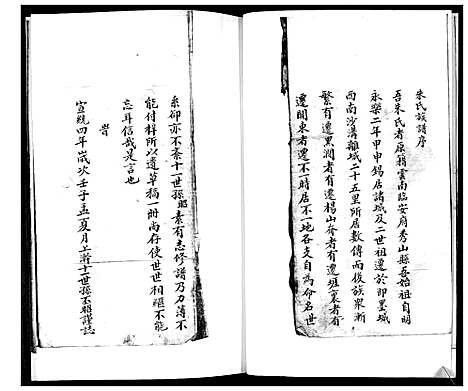 朱氏族譜序
吾朱氏者原籍雲南臨安府秀山縣吾始祖自明
永樂二年甲申錫居諸城及二世祖遷於即墨城
西南沙溝離城二十五里所居數傳而後族衆漸
繁有遷黑澗者有遷楊山夼者有遷垣裏者有
遷開東者遷不一時居不一地各支自為命名世
系卻亦不紊十一世孫昭素有志修譜乃力薄不
能付梓所以遺草稿一冊尚存使世世相繼不能
忘耳信哉是言也
旹
宣統四年歲次壬子孟夏月上澣十世孫丕顯謹誌